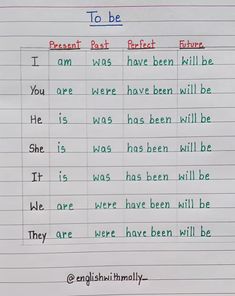 To be
Present Past Perfect Future
I am was have been will be
You are were have been will be
He is was has been will be
She is was has been will be
It is was has been will be
We are were have been will be
They are were have been will be
@englishwithmolly_